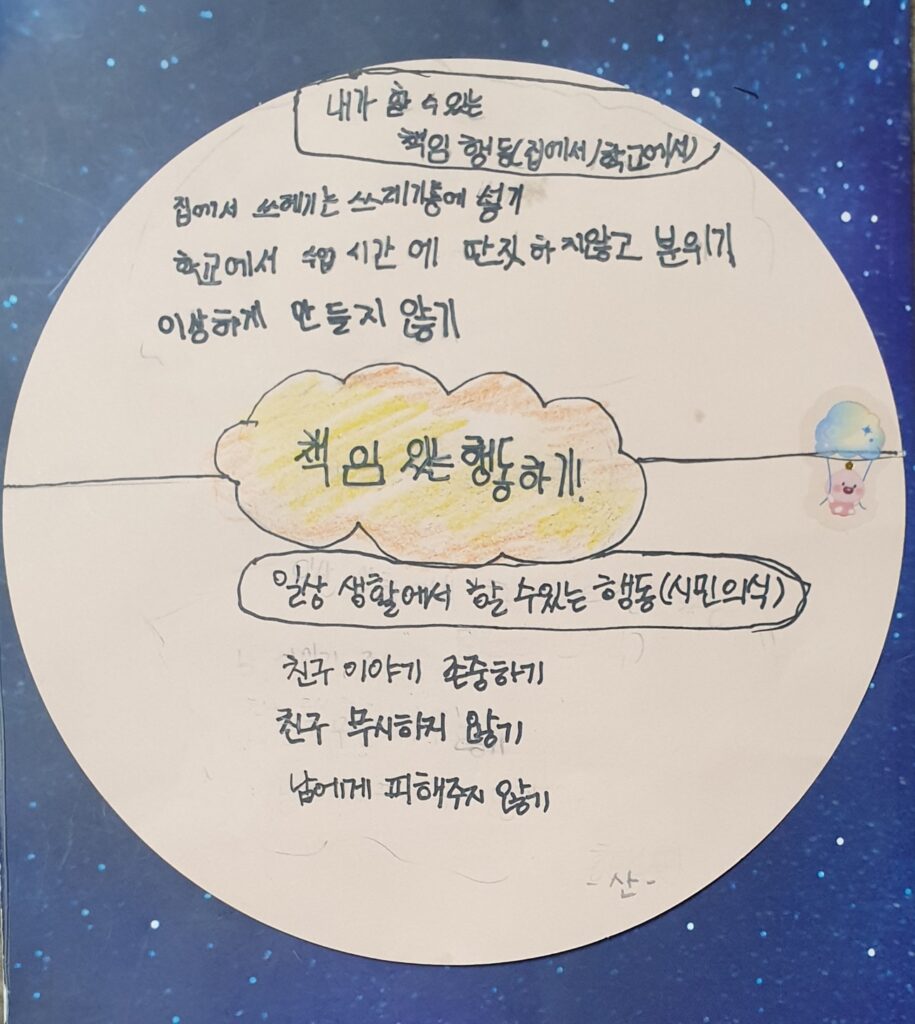 내가 할 수 있는
책임 행동(집에서/학교에서)
집에서 쓰헤기는 쓰레기통에 넣기
학교에서 수업 시간에 딴짓하지않고 분위기
이상하게 만들지 않기
책임 있는 행동하기!
일상 생활에서 할 수있는 행동(시민의식)
친구 이야기 존중하기
친구 무시하지 않기
남에게 피해주지 않기
-산-